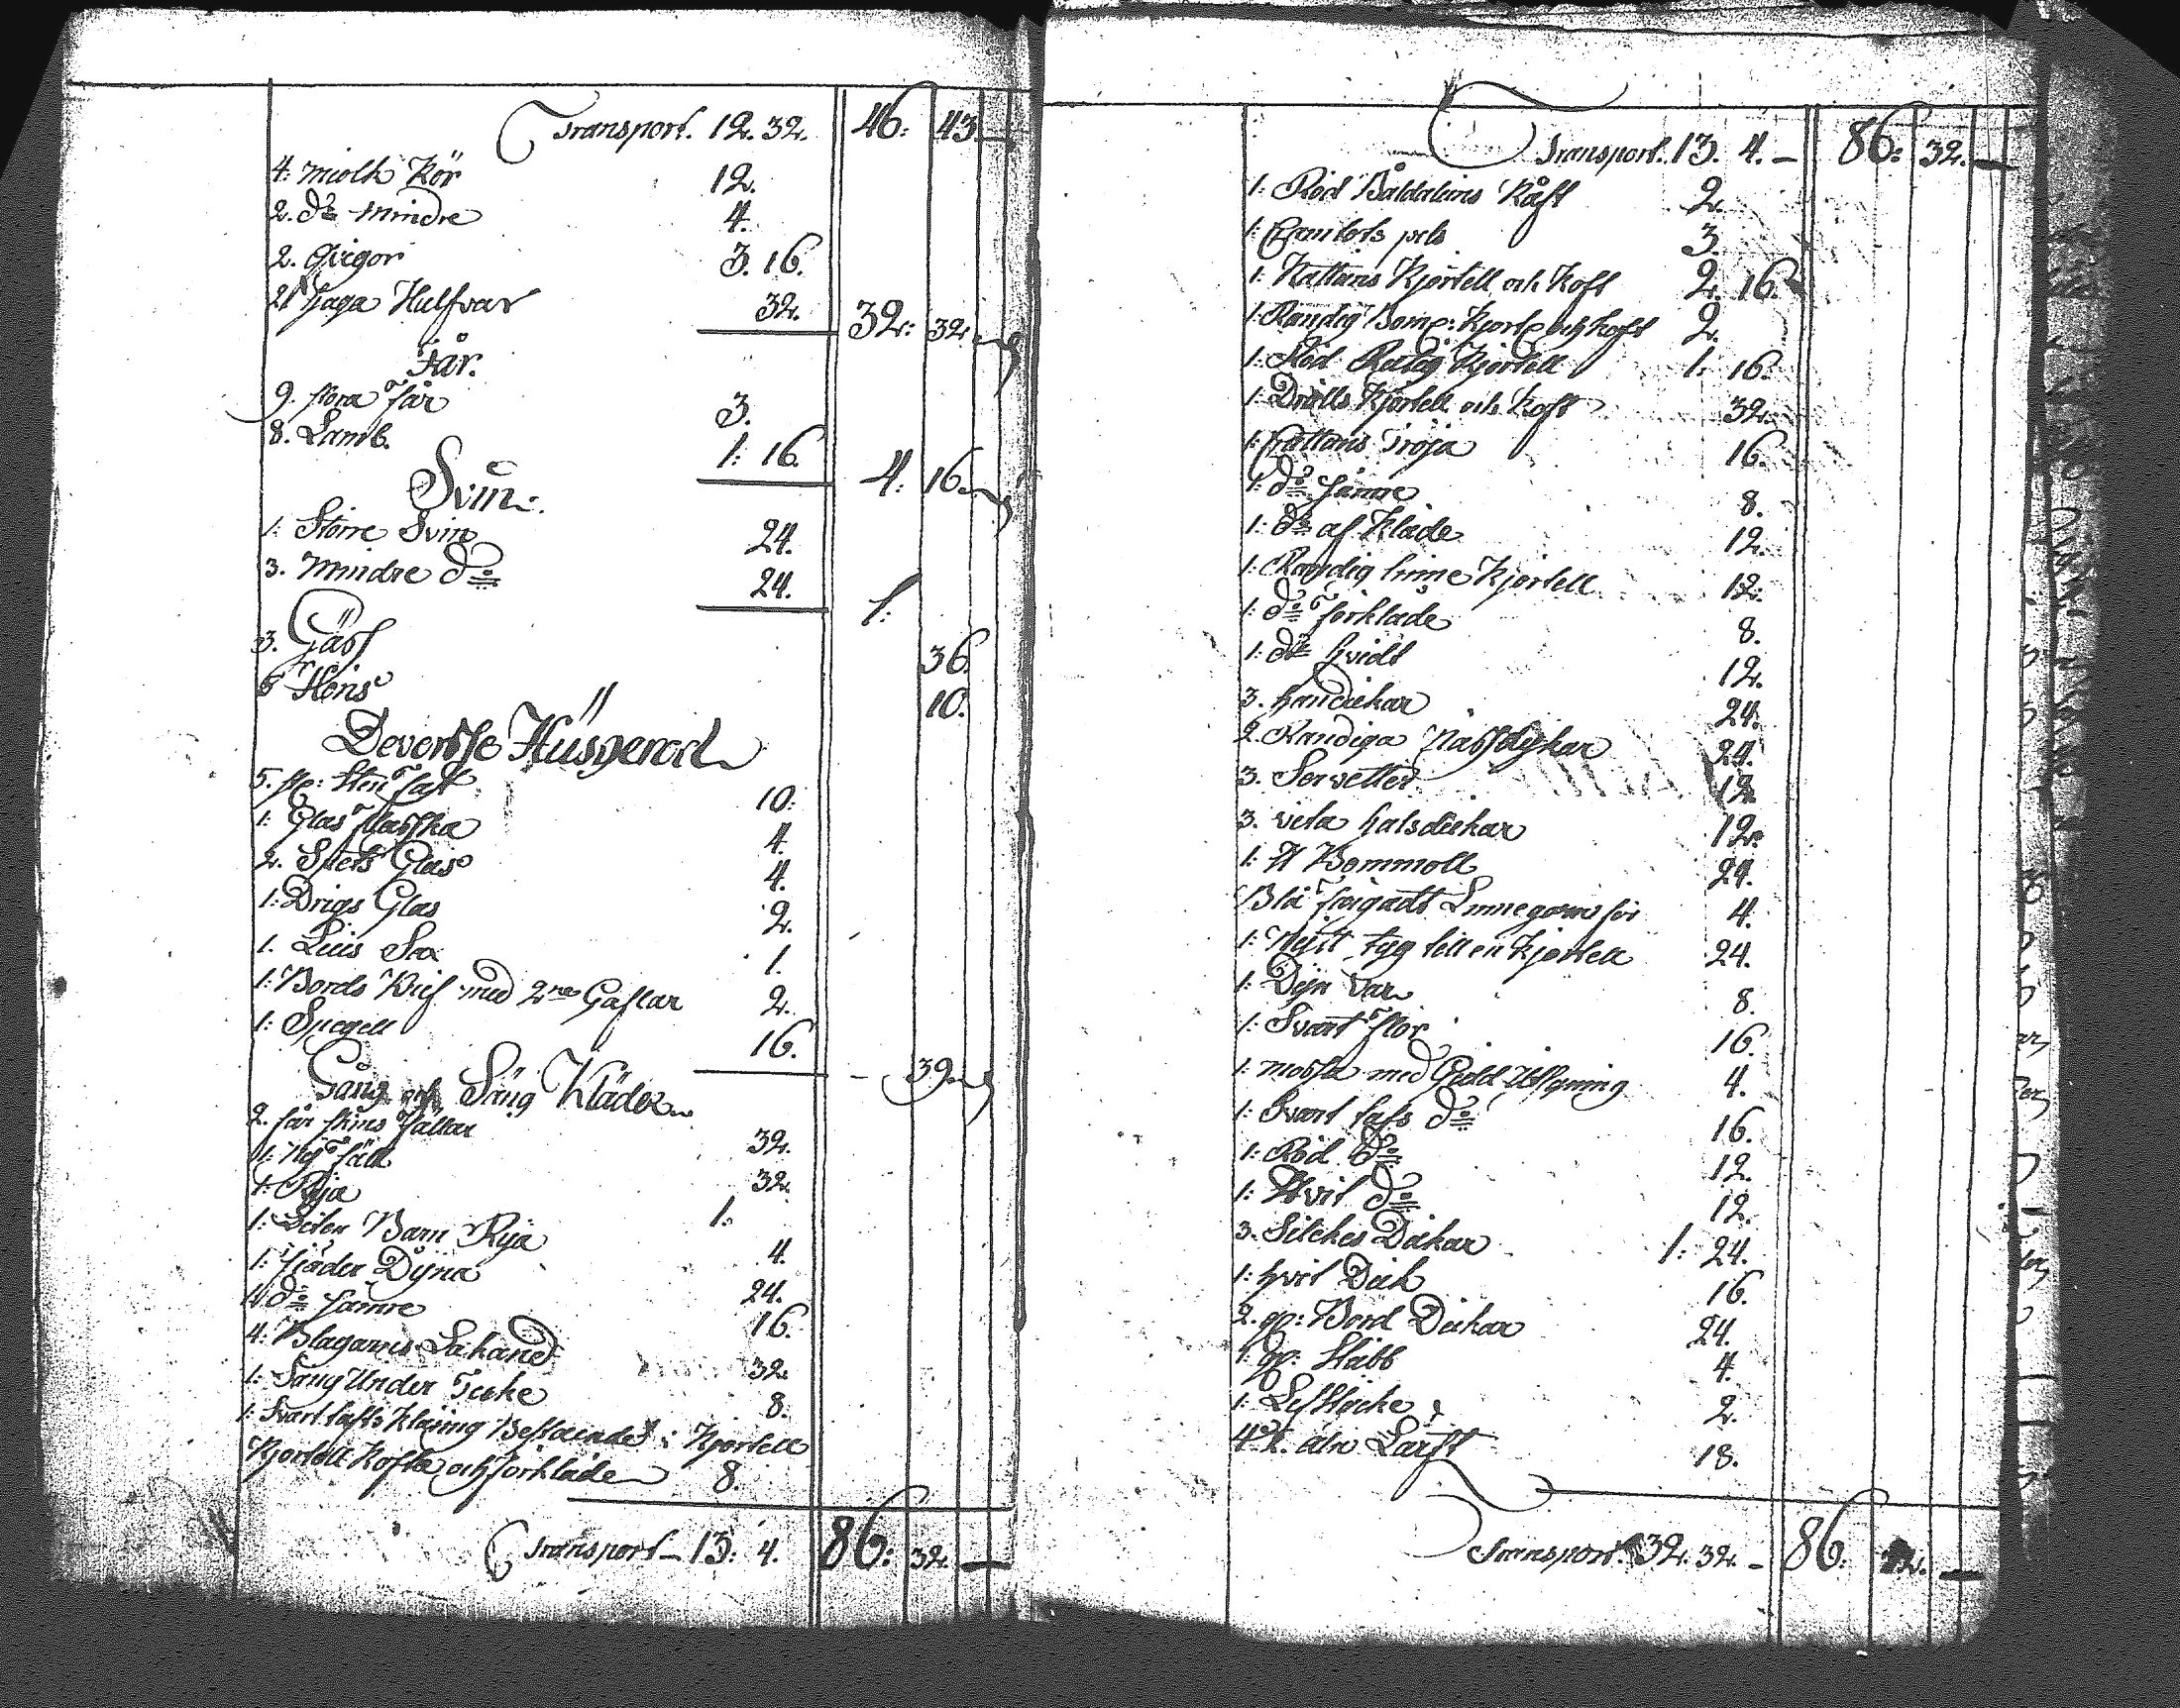 Transport. 12. 32. 46: 43.
4: miolk Kör 12.
2. do mindre 4.
2. Qvigor 3. 16.
2 Kalfvar 32. 32: 32.
Får.
9. stora Får 3.
8. Lamb. 1: 16. 4: 16.
Svin.
1: Större Svin 24.
3. Mindre do 24. 1:
3. Gäss 36.
6 Höns 10.
Husgeråd
5. st: Sten Fatt 10:
1: Glas Flaska 4.
2. Spets Glas 4.
1: Glas 2.
1. Lius Sax 1.
1: Bords Knif med 2ne Gaflar 2.
1: Spegell 16. 39.
Säng och Säng Kläder
2. får skins Fällar 32.
1: Ny Fäll 32.
1: Rya 1:
1: Liten Barn Rya 4.
1: Fjäder Dyna 24.
1 do sämre 16.
4: Blagarns Lakand 32.
1: Säng Under Täcke 8.
1: Svart tafts Kläning Bestående i Kjortell
Kjortell Kofta och förkläde 8.
Transport - 13: 4. 86: 32.
Transport. 13. 4. 86: 32.
1: Röd Kåft 2.
1: pels 3.
1: Kattuns Kjortell och Koft 2. 16.
1: Randig Bom: Kjort och Koft 2.
1: Röd Kjortell 1: 16.
1: Drälls Kjortell och Koft 32.
1: Cattuns Tröja 16.
1: do sämre 8.
1: do af Kläde 12.
1: Randig linne Kjortell 12.
1: do Förkläde 8.
1: do hvidt 12.
3. handukar 24.
2. Randiga Näsdukar 24.
3. Servetter 12.
3. vita halsdukar 12.
1: ℔ Bommoll 24.
Blå Färgadt Linnegarn för 4.
1: Nytt tyg till en Kjortell 24.
1: Dyn Var 8.
1: Svart Flor 16.
1: mössa med Guld 4.
1: Svart tafs do 16.
1: Röd do 12.
1: Hvit do 12.
3. Silckes Dukar 1: 24.
1: hvit Duk 16.
2. gr: Bord Dukar 24.
1: gr: Stubb 4.
1: 2.
4 aln Lärft 18.
Transport. 32. 32. 86: